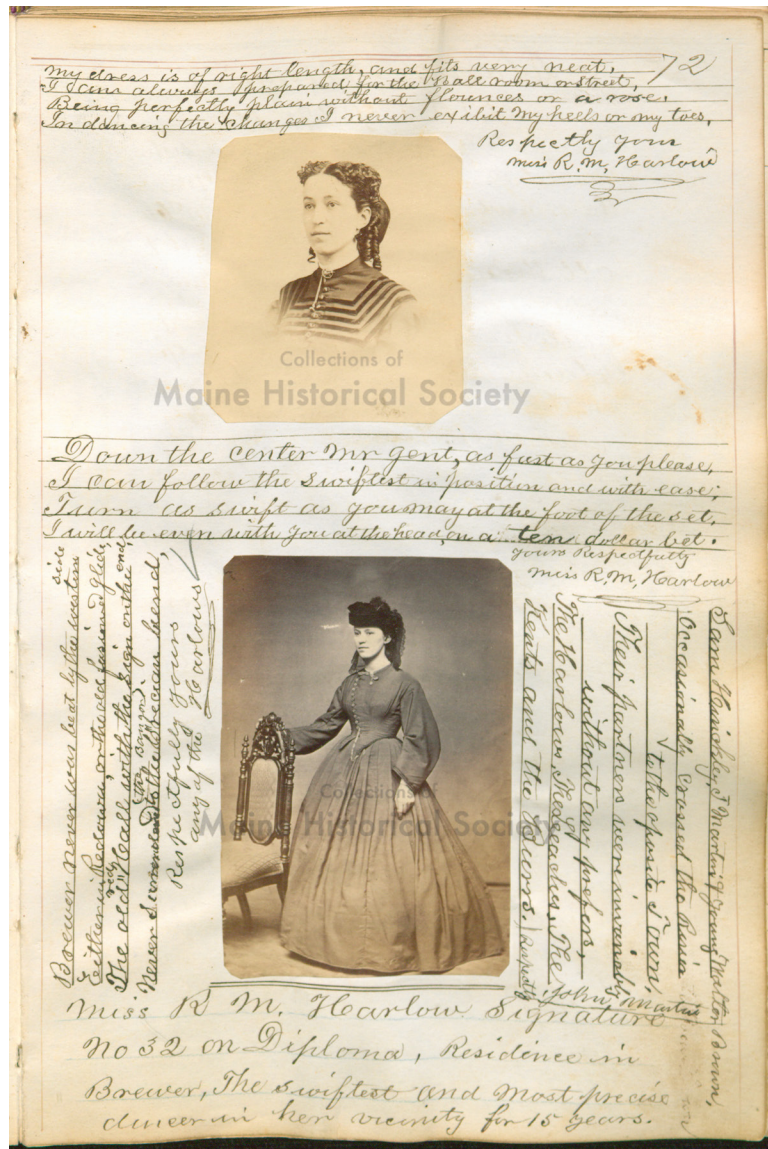 72
My dress is of right length, and fits very neat.
I am always prepared for the Hall room or street,
Being perfectly plain without flounces or a rose.
In dancing the changes I never exibit my heels or my toes.
Respectly yours
Miss R. M. Harlow
Collections of
Maine Historical Society
Down the center Mr gent, as fast as you please,
I can follow the swiftest in position and with ease;
Turn as swift as you may at the foot of the set,
I will be even with you at the head, on a ten dollar bet.
Yours Respectfully
Miss R. M. Harlow
Brewer never was beat by the western side
Either in Redowa, or the old fasioned glide,
The old red Hall with the sign on the end,
Never surrendered to the Grecian bend,
Respectfully yours
any of the Harlows
Collections of
Maine Historical Society
Sam Hinckley, J Martin & young Milton Brown,
Occasionally crossed the River
to the opposite Town,
Their partners were invariably
without any prefors,
The Harlows, The Leaches, The
Kents and the Burrs. Respectly
John Martin
Miss R M. Harlow Signature
No 32 on Diploma, Residence in
Brewer, The swiftest and most precise
dancer in her vicinity for 15 years.